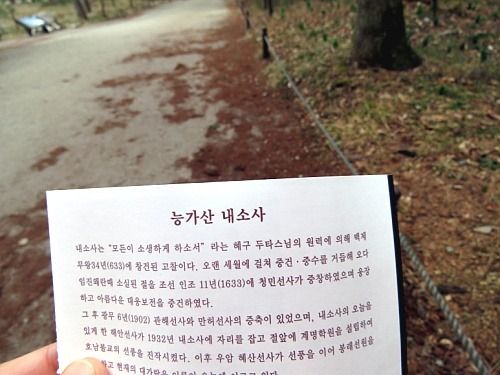 능가산 내소사
내소사는 "모든이 소생하게 하소서" 라는 혜구 두타스님의 원력에 의해 백제
무왕34년(633)에 창건된 고찰이다. 오랜 세월에 걸쳐 중건·중수를 거듭해 오다
임진왜란때 소실된 절을 조선 인조 11년(1633)에 청민선사가 중창하였으며 웅장
하고 아름다운 대웅보전을 중건하였다.
그 후 광무 6년(1902) 관해선사와 만허선사의 증축이 있었으며, 내소사의 오늘을
있게 한 해안선사가 1932년 내소사에 자리를 잡고 절앞에 계명학원을 설립하여
호남불교의 선풍을 진작시켰다. 이후 우암 혜산선사가 선풍을 이어 봉래선원을
하고 현재의 대가람을